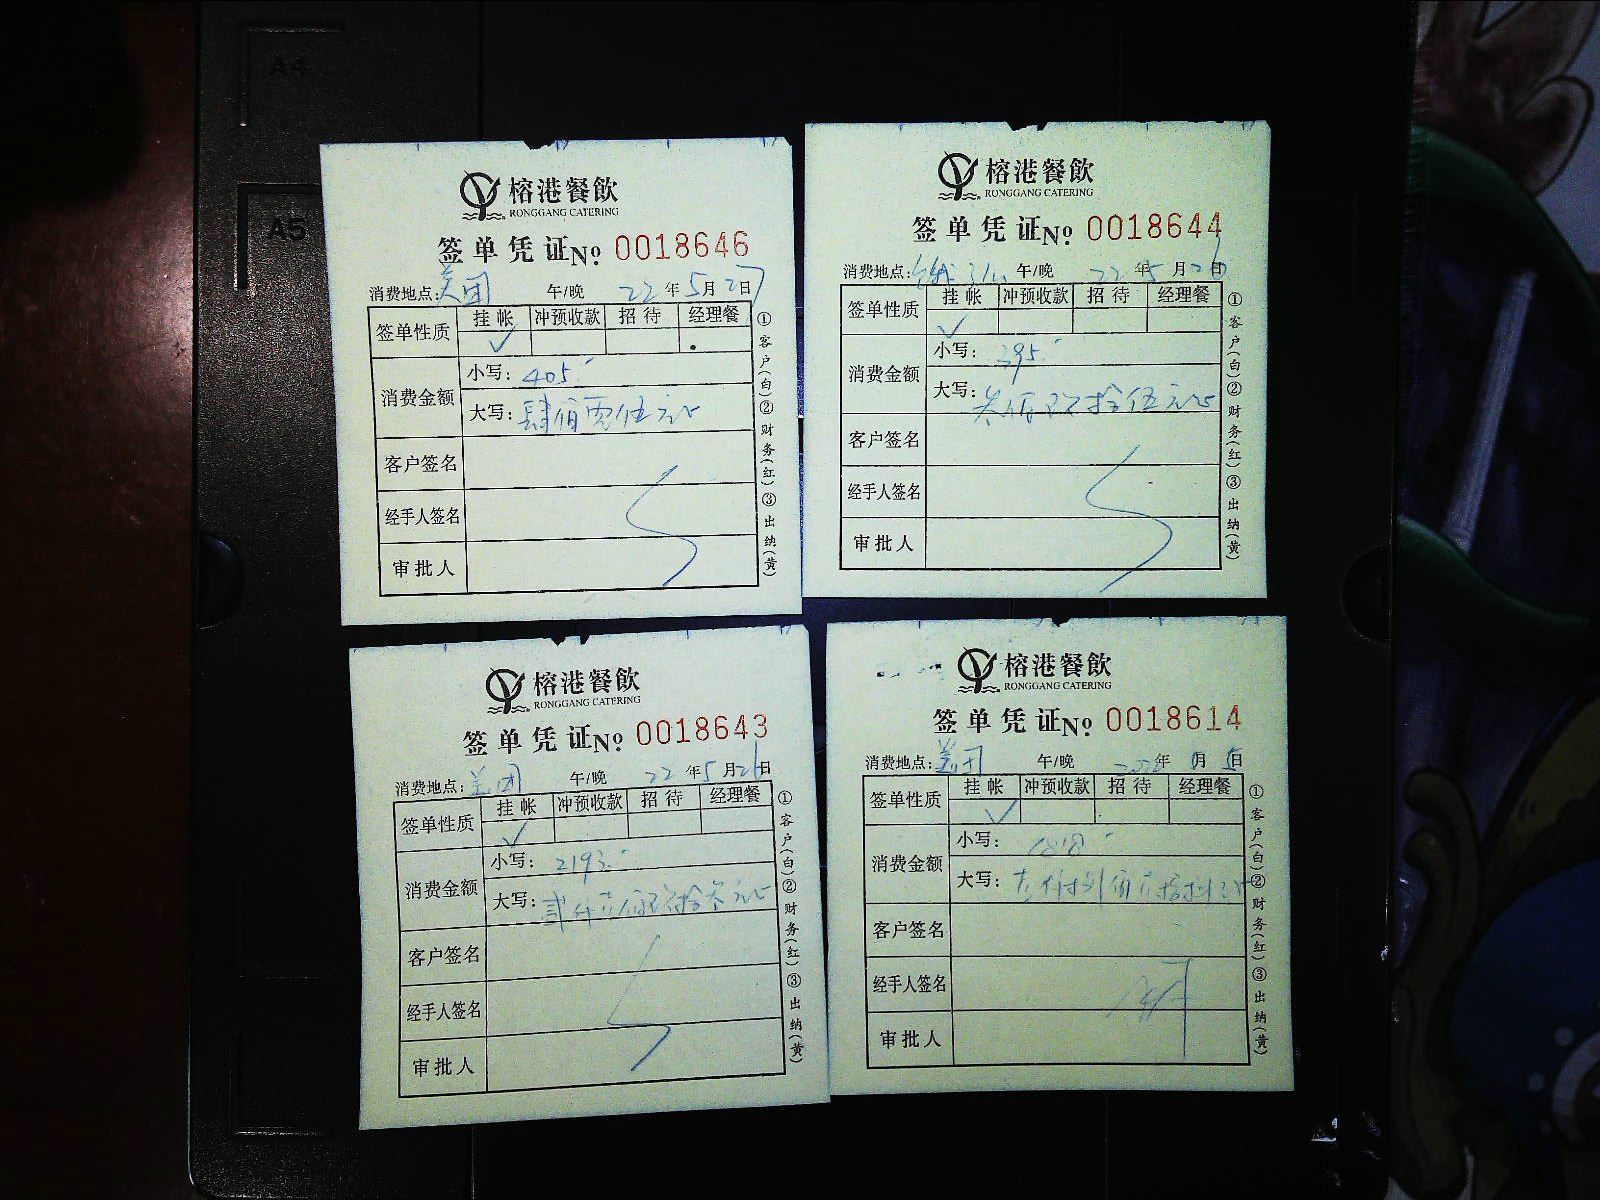 A4
A5
榕港餐飲
RONGGANG CATERING
签单凭证 No 0018646
消费地点: 美团 午/晚 22年5月27日
签单性质 挂帐 冲预收款 招待 经理餐
✓
消费金额 小写: 405.-
大写: 肆佰零伍元正
客户签名
经手人签名
审批人
①客户(白)②财务(红)③出纳(黄)
榕港餐飲
RONGGANG CATERING
签单凭证 No 0018644
消费地点: 午/晚 22年5月26日
签单性质 挂帐 冲预收款 招待 经理餐
✓
消费金额 小写: 395.-
大写: 叁佰玖拾伍元正
客户签名
经手人签名
审批人
①客户(白)②财务(红)③出纳(黄)
榕港餐飲
RONGGANG CATERING
签单凭证 No 0018643
消费地点: 美团 午/晚 22年5月26日
签单性质 挂帐 冲预收款 招待 经理餐
✓
消费金额 小写: 2193.-
大写: 贰仟壹佰玖拾叁元正
客户签名
经手人签名
审批人
①客户(白)②财务(红)③出纳(黄)
榕港餐飲
RONGGANG CATERING
签单凭证 No 0018614
消费地点: 美团 午/晚 年 月 日
签单性质 挂帐 冲预收款 招待 经理餐
✓
消费金额 小写: 1818.-
大写: 壹仟捌佰壹拾捌元正
客户签名
经手人签名
审批人
①客户(白)②财务(红)③出纳(黄)